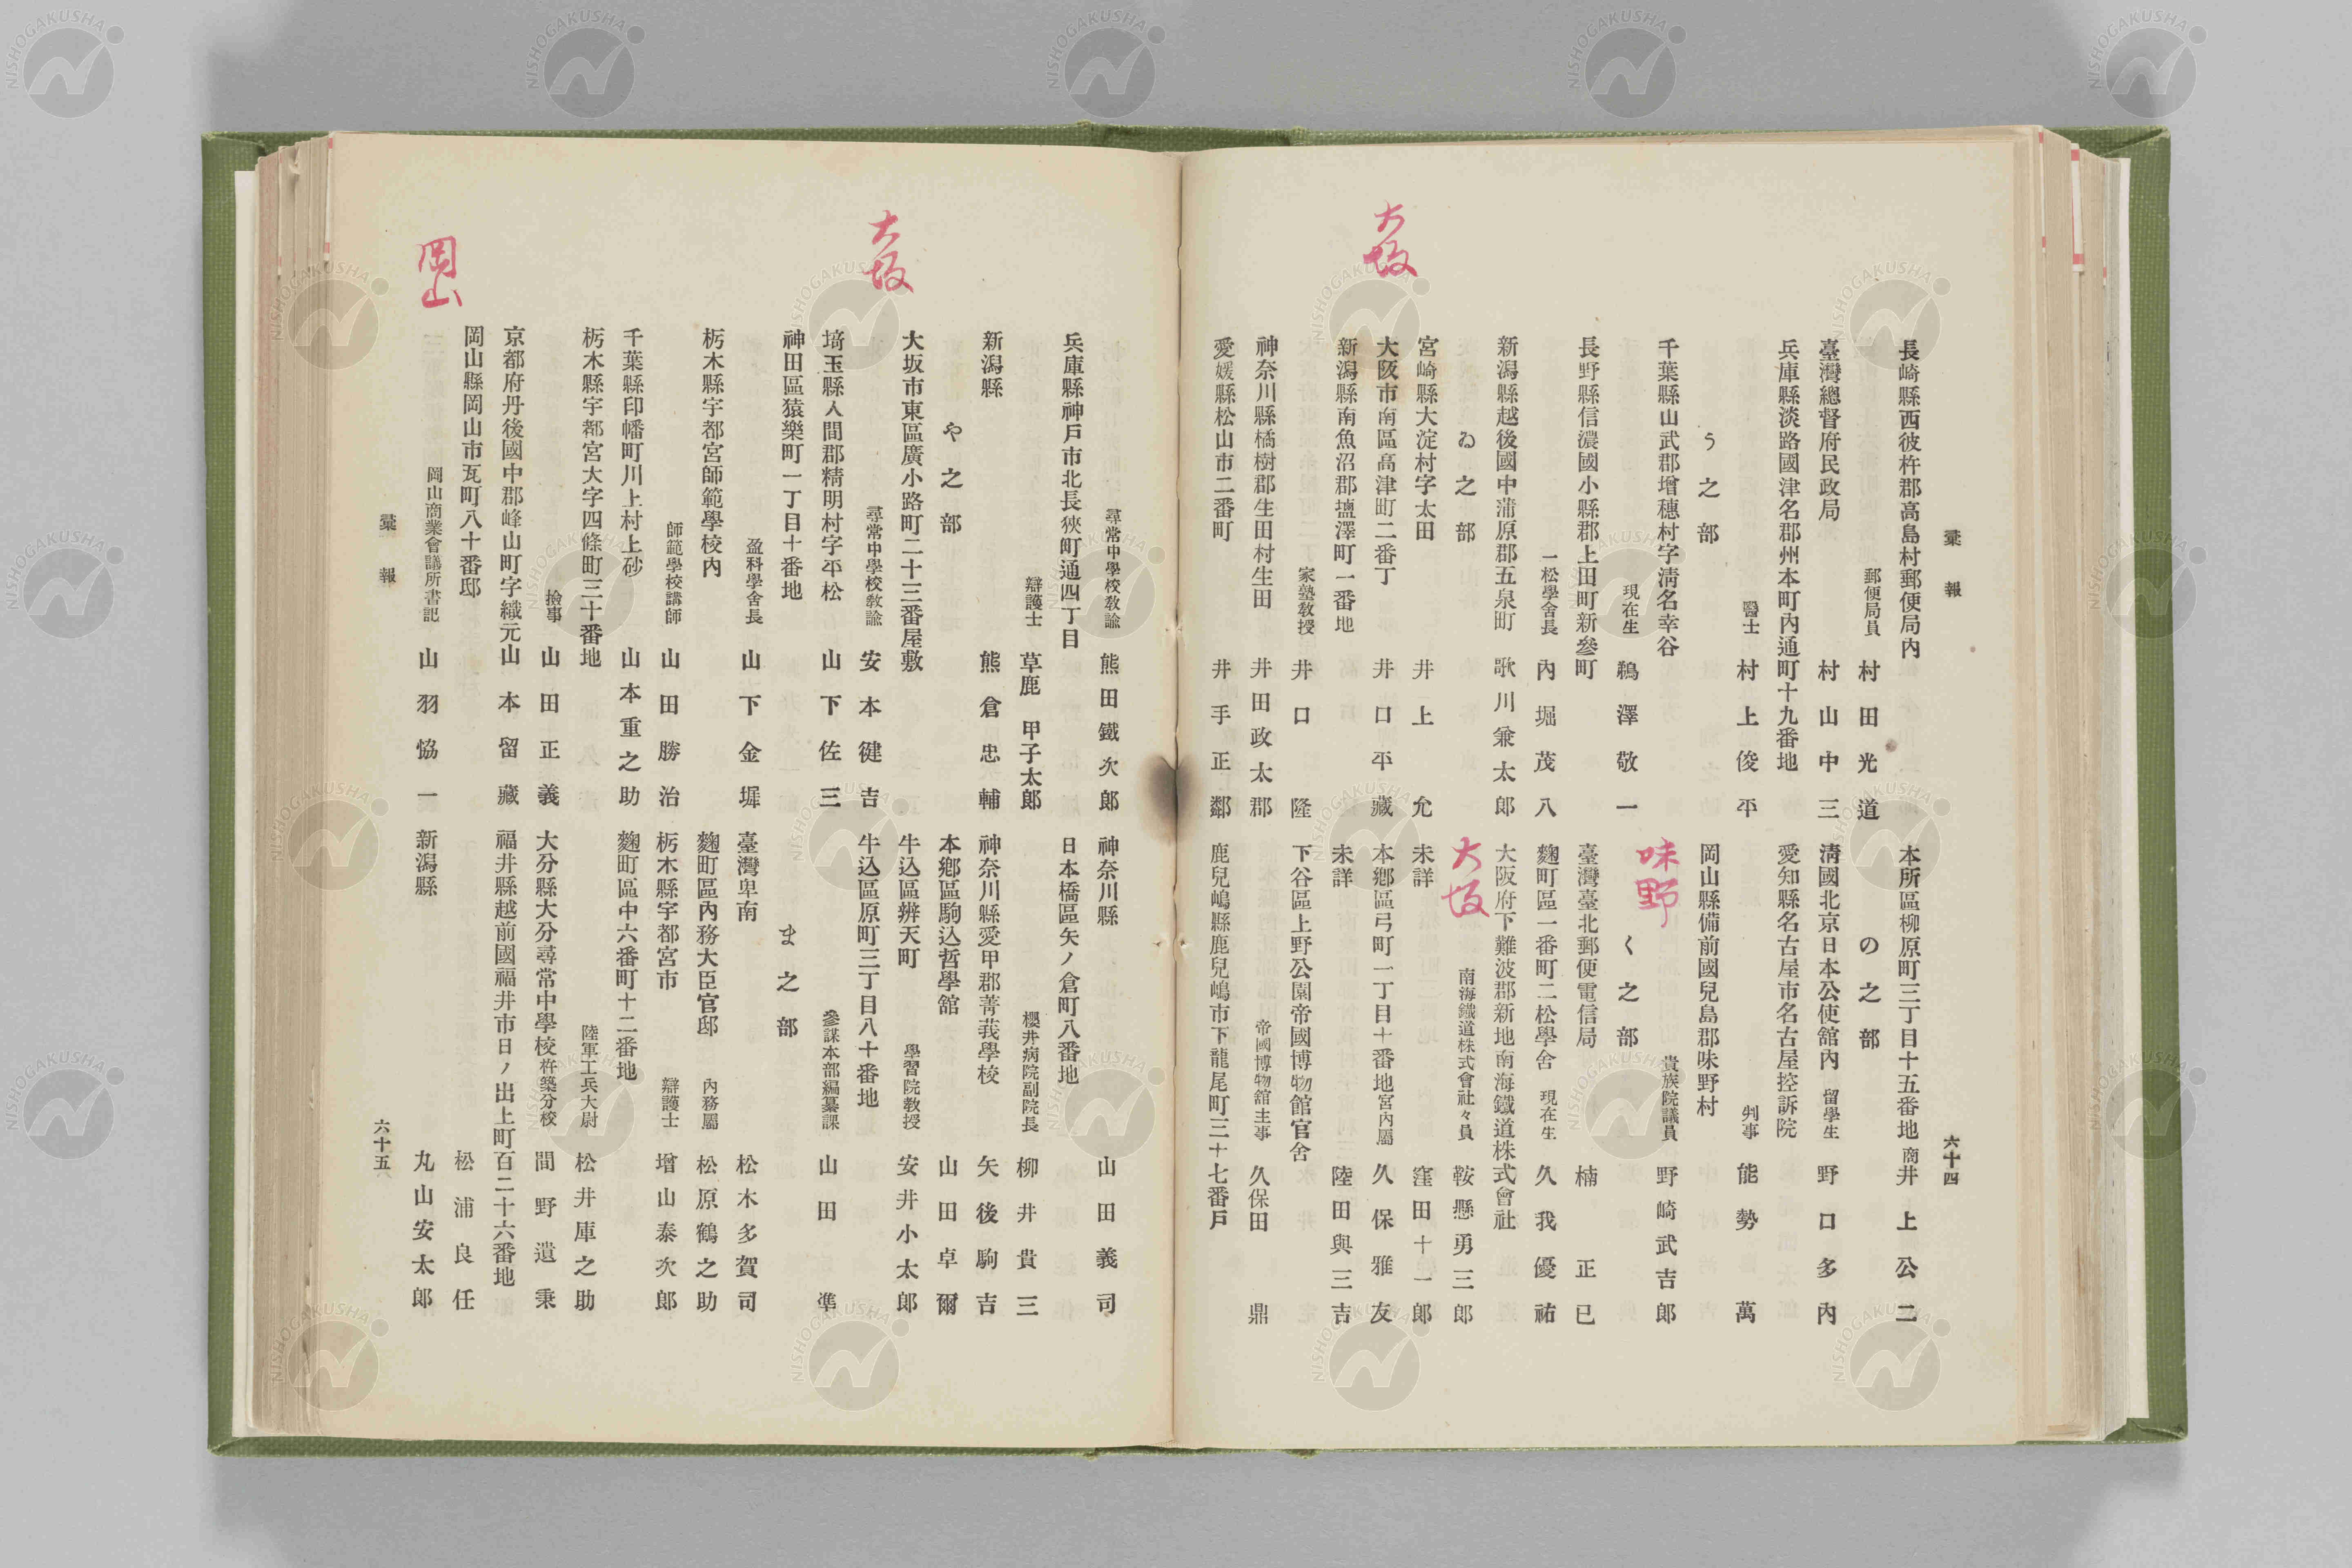 彙報
六十四
長崎縣西彼杵郡高島村郵便局内
郵便局員 村田光道
臺灣總督府民政局 村山中三
兵庫縣淡路國津名郡州本町内通町十九番地
醫士 村上俊平
う之部
千葉縣山武郡增穗村字清名幸谷
現在生 鵜澤敬一
長野縣信濃國小縣郡上田町新參町
一松學舍長 内堀茂八
新潟縣越後國中蒲原郡五泉町 歌川兼太郎
ゐ之部
宮崎縣大淀村字太田 井上允
大坂
大阪市南區高津町二番丁 井口平藏
新潟縣南魚沼郡塩澤町一番地
家塾教授 井口隆
神奈川縣橘樹郡生田村生田 井田政太郡
愛媛縣松山市二番町 井手正鄰
本所區柳原町三丁目十五番地 商 井上公二
の之部
清國北京日本公使舘内 留學生 野口多内
愛知縣名古屋市名古屋控訴院
判事 能勢萬
岡山縣備前國兒島郡味野村
味野
貴族院議員 野崎武吉郎
く之部
臺灣臺北郵便電信局 楠正已
麹町區一番町二松學舍 現在生 久我優祐
大阪府下難波郡新地南海鐵道株式會社
大坂
南海鐵道株式會社々員 鞍懸勇三郎
未詳 窪田十一郎
本鄉區弓町一丁目十番地宮内屬 久保雅友
未詳 陸田與三吉
下谷區上野公園帝國博物館官舍
帝國博物舘主事 久保田鼎
鹿兒嶋縣鹿兒嶋市下龍尾町三十七番戸
尋常中學校教諭 熊田鐵次郎
兵庫縣神戸市北長狹町通四丁目
辯護士 草鹿甲子太郎
新潟縣 熊倉忠輔
や之部
大坂
大坂市東區廣小路町二十三番屋敷
尋常中學校教諭 安本健吉
埼玉縣入間郡精明村字平松 山下佐三
神田區猿樂町一丁目十番地
盈科學舍長 山下金墀
栃木縣宇都宮師範學校内
師範學校講師 山田勝治
千葉縣印幡町川上村上砂 山本重之助
栃木縣宇都宮大字四條町三十番地
撿事 山田正義
京都府丹後國中郡峰山町字織元 山本留藏
岡山縣岡山市瓦町八十番邸
岡山
岡山商業會議所書記 山羽恊一
神奈川縣 山田義司
日本橋區矢ノ倉町八番地
櫻井病院副院長 柳井貴三
神奈川縣愛甲郡菁莪學校 矢後駒吉
本鄉區駒込哲學舘 山田卓爾
牛込區辨天町 學習院教授 安井小太郎
牛込區原町三丁目八十番地
參謀本部編纂課 山田準
ま之部
臺灣卑南 松木多賀司
麴町區内務大臣官邸 内務屬 松原鶴之助
栃木縣宇都宮市 辯護士 增山泰次郎
麴町區中六番町十二番地
陸軍工兵大尉 松井庫之助
大分縣大分尋常中學校杵築分校 間野遺秉
福井縣越前國福井市日ノ出上町百二十六番地
松浦良任
新潟縣 丸山安太郎
彙報
六十五